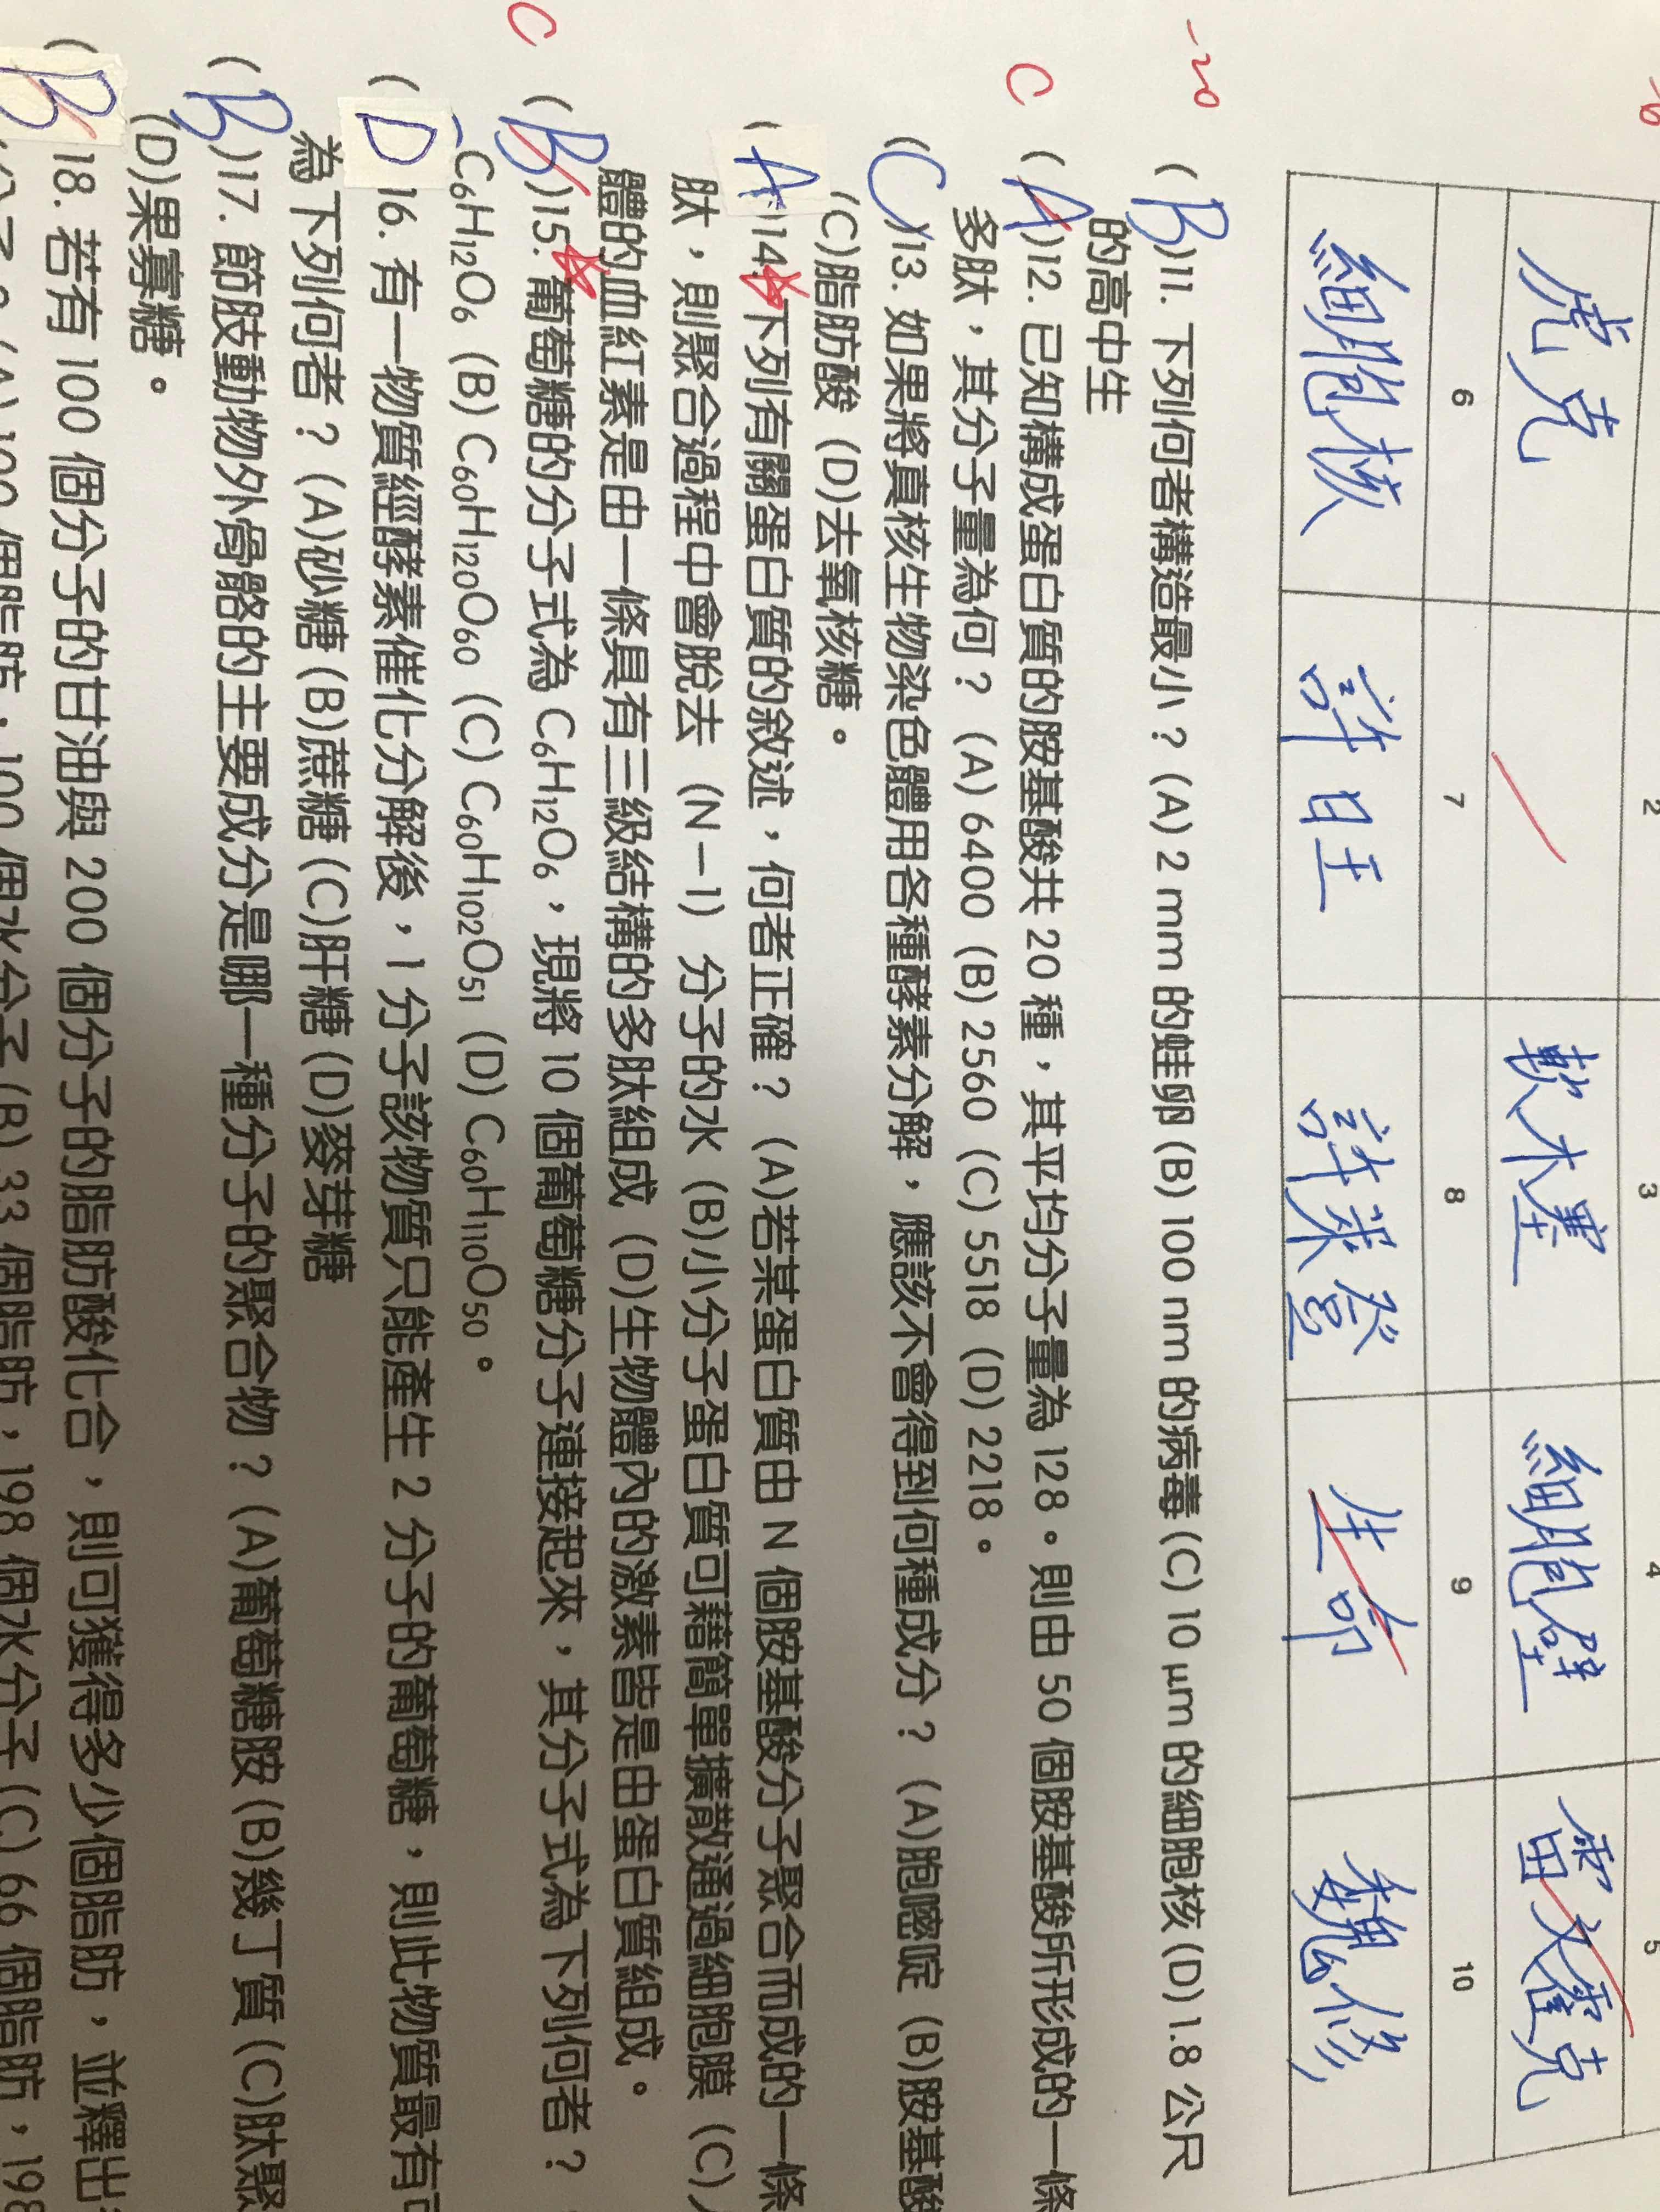 -20
2 3 4 5
虎克 軟木塞 細胞壁 雷文霍克
6 7 8 9 10
細胞核 許旺 許萊登 生命 魏修
(B)11. 下列何者構造最小？(A) 2 mm 的蛙卵 (B) 100 nm 的病毒 (C) 10 μm 的細胞核 (D) 1.8 公尺
的高中生
C (A)12. 已知構成蛋白質的胺基酸共 20 種，其平均分子量為 128。則由 50 個胺基酸所形成的一條
多肽，其分子量為何？ (A) 6400 (B) 2560 (C) 5518 (D) 2218。
(C)13. 如果將真核生物染色體用各種酵素分解，應該不會得到何種成分？ (A)胞嘧啶 (B)胺基酸
(C)脂肪酸 (D)去氧核糖。
(A)14. 下列有關蛋白質的敘述，何者正確？ (A)若某蛋白質由 N 個胺基酸分子聚合而成的一條
肽，則聚合過程中會脫去 (N－1) 分子的水 (B)小分子蛋白質可藉簡單擴散通過細胞膜 (C)
體的血紅素是由一條具有三級結構的多肽組成 (D)生物體內的激素皆是由蛋白質組成。
C (B)15. 葡萄糖的分子式為 C₆H₁₂O₆，現將 10 個葡萄糖分子連接起來，其分子式為下列何者？
C₆H₁₂O₆ (B) C₆₀H₁₂₀O₆₀ (C) C₆₀H₁₀₂O₅₁ (D) C₆₀H₁₁₀O₅₀。
(D 16. 有一物質經酵素催化分解後，1 分子該物質只能產生 2 分子的葡萄糖，則此物質最有可
為下列何者？ (A)砂糖 (B)蔗糖 (C)肝糖 (D)麥芽糖
(B)17. 節肢動物外骨骼的主要成分是哪一種分子的聚合物？ (A)葡萄糖胺 (B)幾丁質 (C)肽聚
(D)果寡糖。
(B 18. 若有 100 個分子的甘油與 200 個分子的脂肪酸化合，則可獲得多少個脂肪，並釋出
(A) 100 個脂肪，100 個水分子 (B) 33 個脂肪，198 個水分子 (C) 66 個脂肪，198